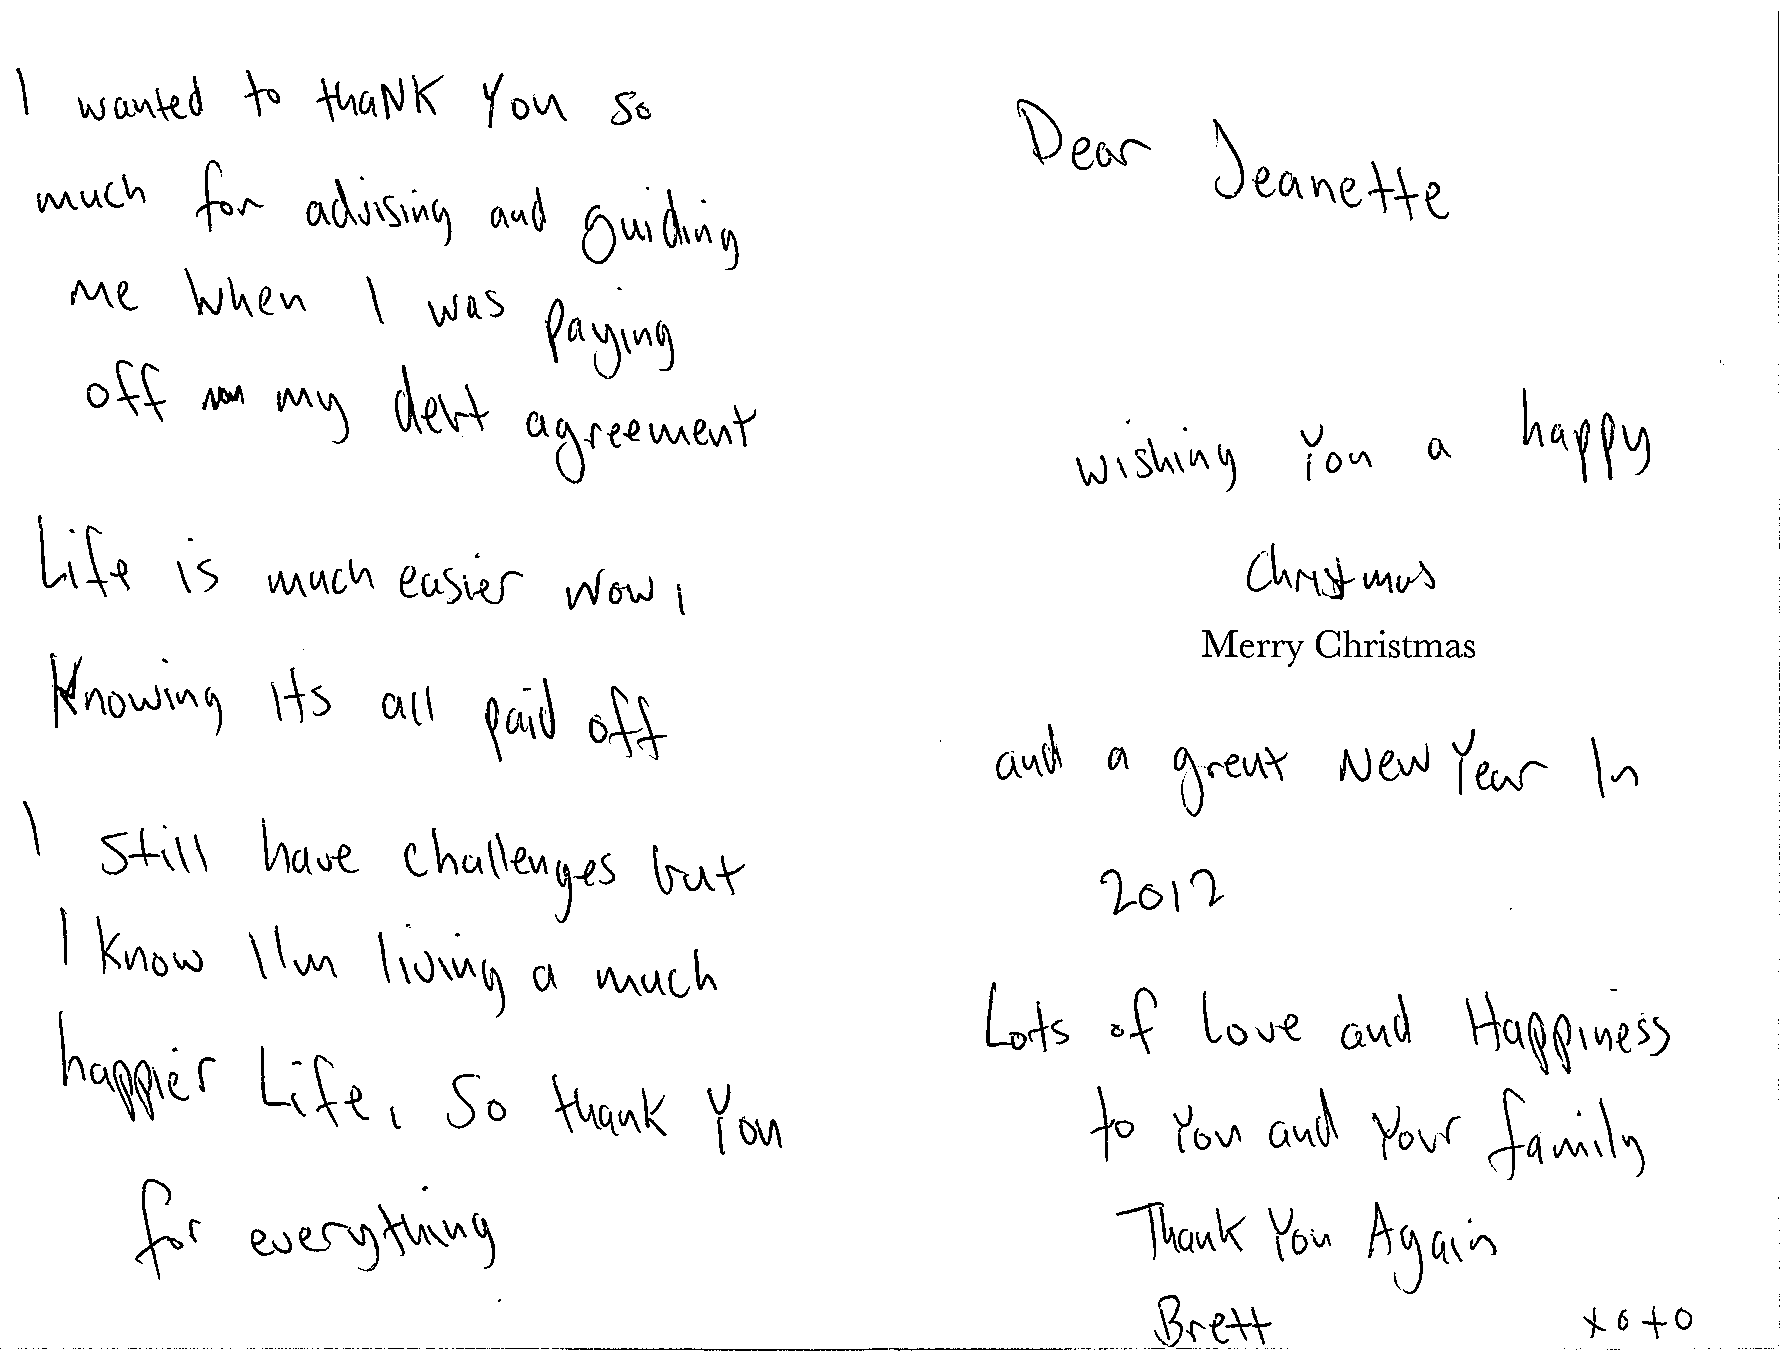 I wanted to thaNK You so
much for advising and guiding
me when I was paying
off my debt agreement
Life is much easier Now,
Knowing its all paid off
I still have challenges but
I know I'm living a much
happier Life, So thank You
for everything
Dear Jeanette
wishing You a happy
Christmas
Merry Christmas
and a great New Year In
2012
Lots of Love and Happiness
to You and Your family
Thank You Again
Brett xoxo